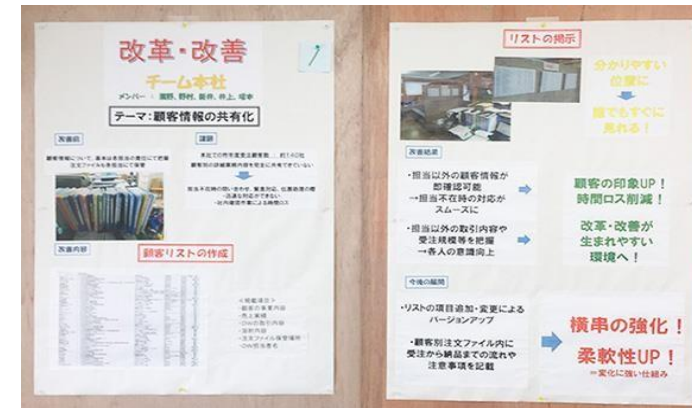 改革・改善
チーム本社
テーマ：顧客情報の共有化
改善前
課題
顧客情報について、基本は各担当の責任にて把握
注文ファイルも各担当にて保管
顧客別の詳細業務内容を完全に共有できていない
担当不在時の問い合わせ、緊急対応、伝票処理の際
・迅速な対応ができない
・社内確認作業による時間ロス
改善内容
顧客リストの作成
≪掲載項目≫
・顧客の事業内容
・売上実績
・DWの取引内容
・注文ファイル保管場所
・DW担当者名
リストの掲示
分かりやすい
位置に
誰でもすぐに
見れる！
改善結果
・担当以外の顧客情報が
即確認可能
→担当不在時の対応が
スムーズに
・担当以外の取引内容や
受注規模等を把握
→各人の意識向上
顧客の印象UP！
時間ロス削減！
改革・改善が
生まれやすい
環境へ！
今後の展開
・リストの項目追加・変更による
バージョンアップ
・顧客別注文ファイル内に
受注から納品までの流れや
注意事項を記載
横串の強化！
柔軟性UP！
＝変化に強い仕組み